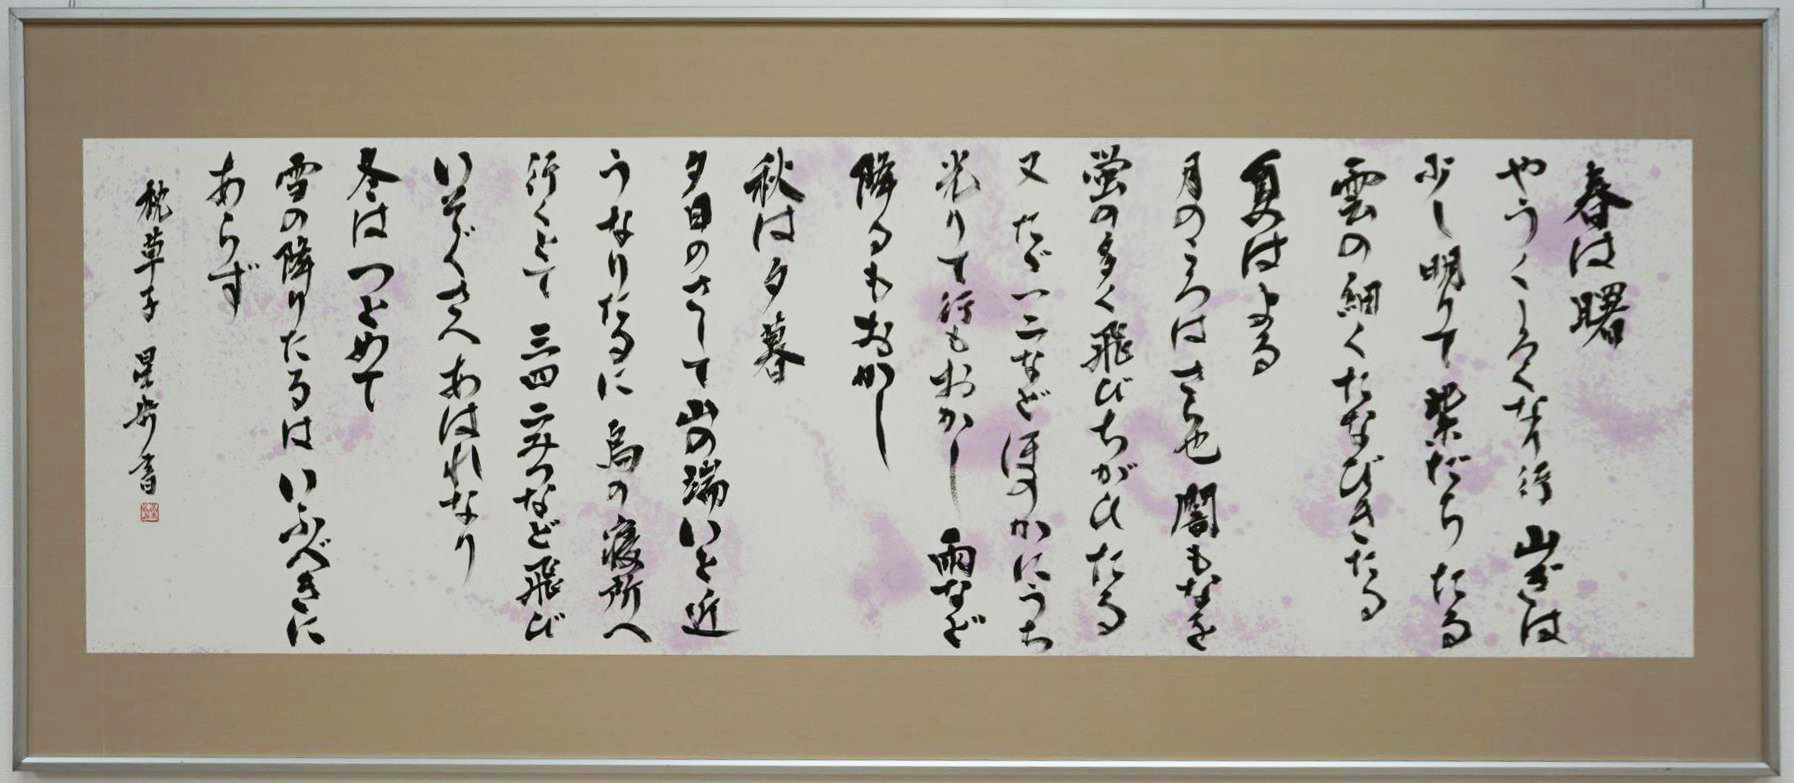 春は曙
やうくしろくなり行 山ぎは
少し明りて 紫だちたる
雲の細くたなびきたる
夏はよる
月のころはさら也 闇もなを
蛍の多く飛びちがひたる
又 たゞ一二などほのかにうち
光りて行もおかし 雨など
降るもおかし
秋は夕暮
夕日のさして山の端いと近
うなりたるに 烏の寝所へ
行くとて 三四 二みつなど飛び
いそぐさへあはれなり
冬はつとめて
雪の降りたるは いふべきに
あらず
枕草子 星 書